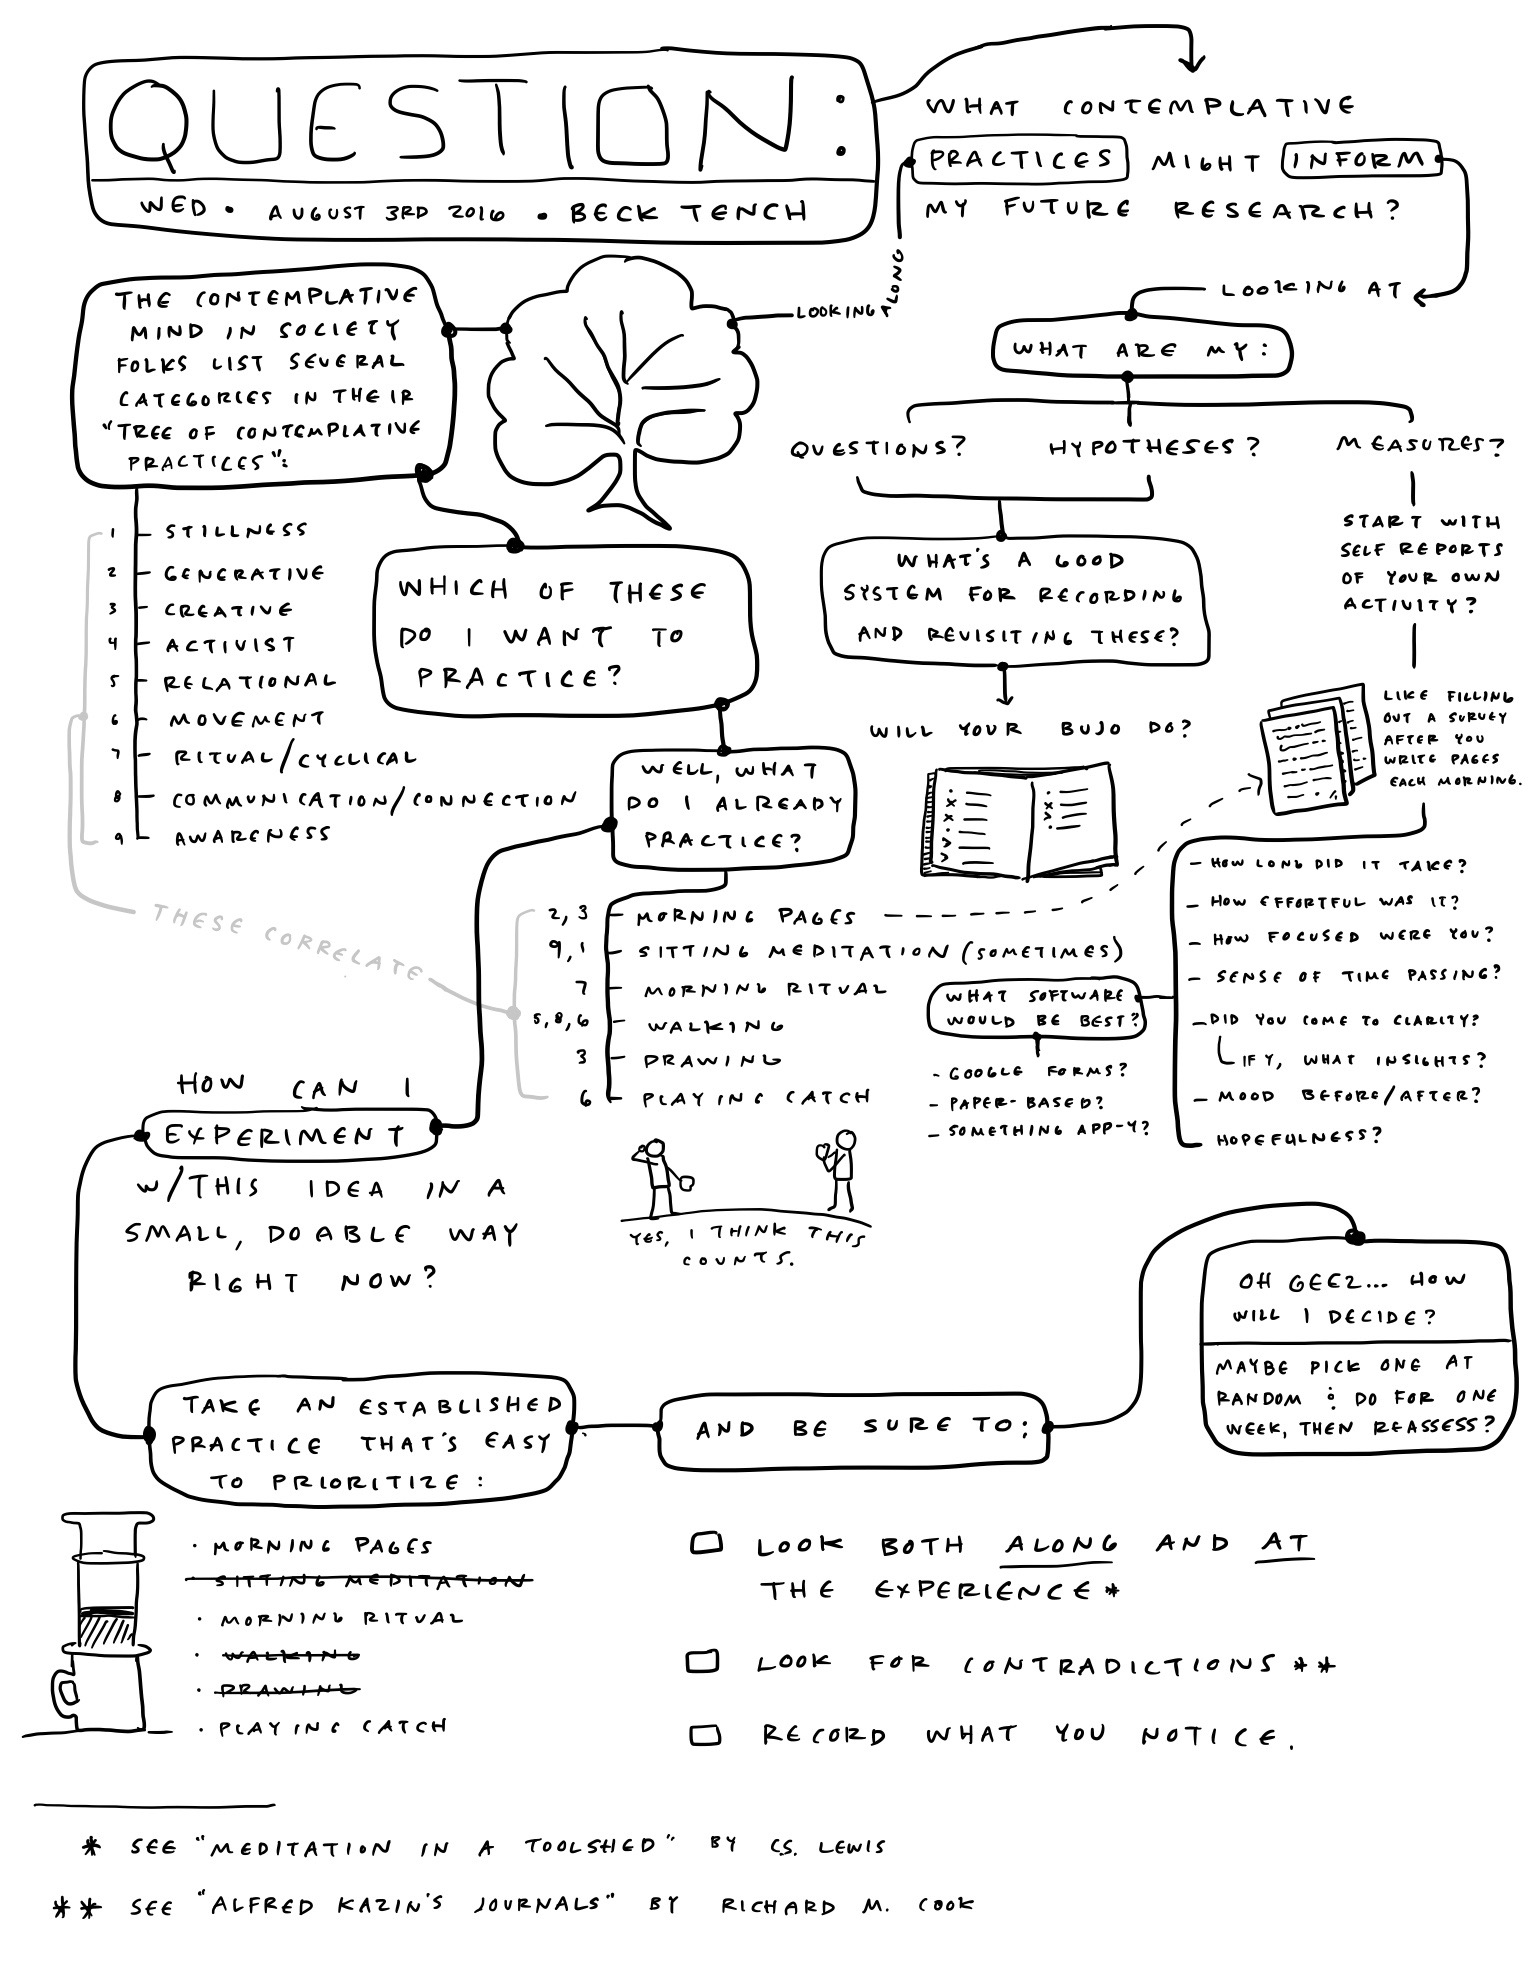 QUESTION:
WED • AUGUST 3RD 2016 • BECK TENCH
WHAT CONTEMPLATIVE
PRACTICES MIGHT INFORM
MY FUTURE RESEARCH?
LOOKING ALONG
LOOKING AT
THE CONTEMPLATIVE
MIND IN SOCIETY
FOLKS LIST SEVERAL
CATEGORIES IN THEIR
"TREE OF CONTEMPLATIVE
PRACTICES":
1 - STILLNESS
2 - GENERATIVE
3 - CREATIVE
4 - ACTIVIST
5 - RELATIONAL
6 - MOVEMENT
7 - RITUAL/CYCLICAL
8 - COMMUNICATION/CONNECTION
9 - AWARENESS
THESE CORRELATE
WHICH OF THESE
DO I WANT TO
PRACTICE?
WELL, WHAT
DO I ALREADY
PRACTICE?
2, 3 - MORNING PAGES
9, 1 - SITTING MEDITATION (SOMETIMES)
7 - MORNING RITUAL
5, 8, 6 - WALKING
3 - DRAWING
6 - PLAYING CATCH
YES, I THINK THIS
COUNTS.
WHAT ARE MY:
QUESTIONS?
HYPOTHESES?
MEASURES?
WHAT'S A GOOD
SYSTEM FOR RECORDING
AND REVISITING THESE?
WILL YOUR BUJO DO?
START WITH
SELF REPORTS
OF YOUR OWN
ACTIVITY?
LIKE FILLING
OUT A SURVEY
AFTER YOU
WRITE PAGES
EACH MORNING.
- HOW LONG DID IT TAKE?
- HOW EFFORTFUL WAS IT?
- HOW FOCUSED WERE YOU?
- SENSE OF TIME PASSING?
- DID YOU COME TO CLARITY?
IF Y, WHAT INSIGHTS?
- MOOD BEFORE/AFTER?
- HOPEFULNESS?
WHAT SOFTWARE
WOULD BE BEST?
- GOOGLE FORMS?
- PAPER-BASED?
- SOMETHING APP-Y?
HOW CAN I
EXPERIMENT
W/THIS IDEA IN A
SMALL, DOABLE WAY
RIGHT NOW?
TAKE AN ESTABLISHED
PRACTICE THAT'S EASY
TO PRIORITIZE:
· MORNING PAGES
· SITTING MEDITATION
· MORNING RITUAL
· WALKING
· DRAWING
· PLAYING CATCH
AND BE SURE TO:
OH GEEZ... HOW
WILL I DECIDE?
MAYBE PICK ONE AT
RANDOM & DO FOR ONE
WEEK, THEN REASSESS?
LOOK BOTH ALONG AND AT
THE EXPERIENCE*
LOOK FOR CONTRADICTIONS**
RECORD WHAT YOU NOTICE.
* SEE "MEDITATION IN A TOOLSHED" BY C.S. LEWIS
** SEE "ALFRED KAZIN'S JOURNALS" BY RICHARD M. COOK